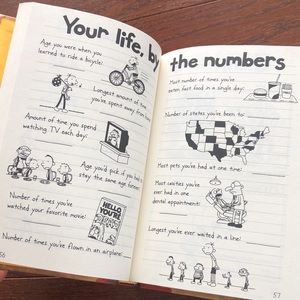 Your life, by
Age you were when you
learned to ride a bicycle:
Longest amount of time
you've spent away from
Amount of time you spend
watching TV each day:
Age you'd pick if you had to
stay the same age forever:
Number of times you've
watched your favorite movie:
HELLO
YOU'RE
Number of times you've flown in an airplane:
56
the numbers
Most number of times you've
eaten fast food in a single day:
Number of states you've been to:
Most pets you've had at one time:
Most cavities you've
ever had in one
dental appointment:
Longest you've ever waited in a line:
57